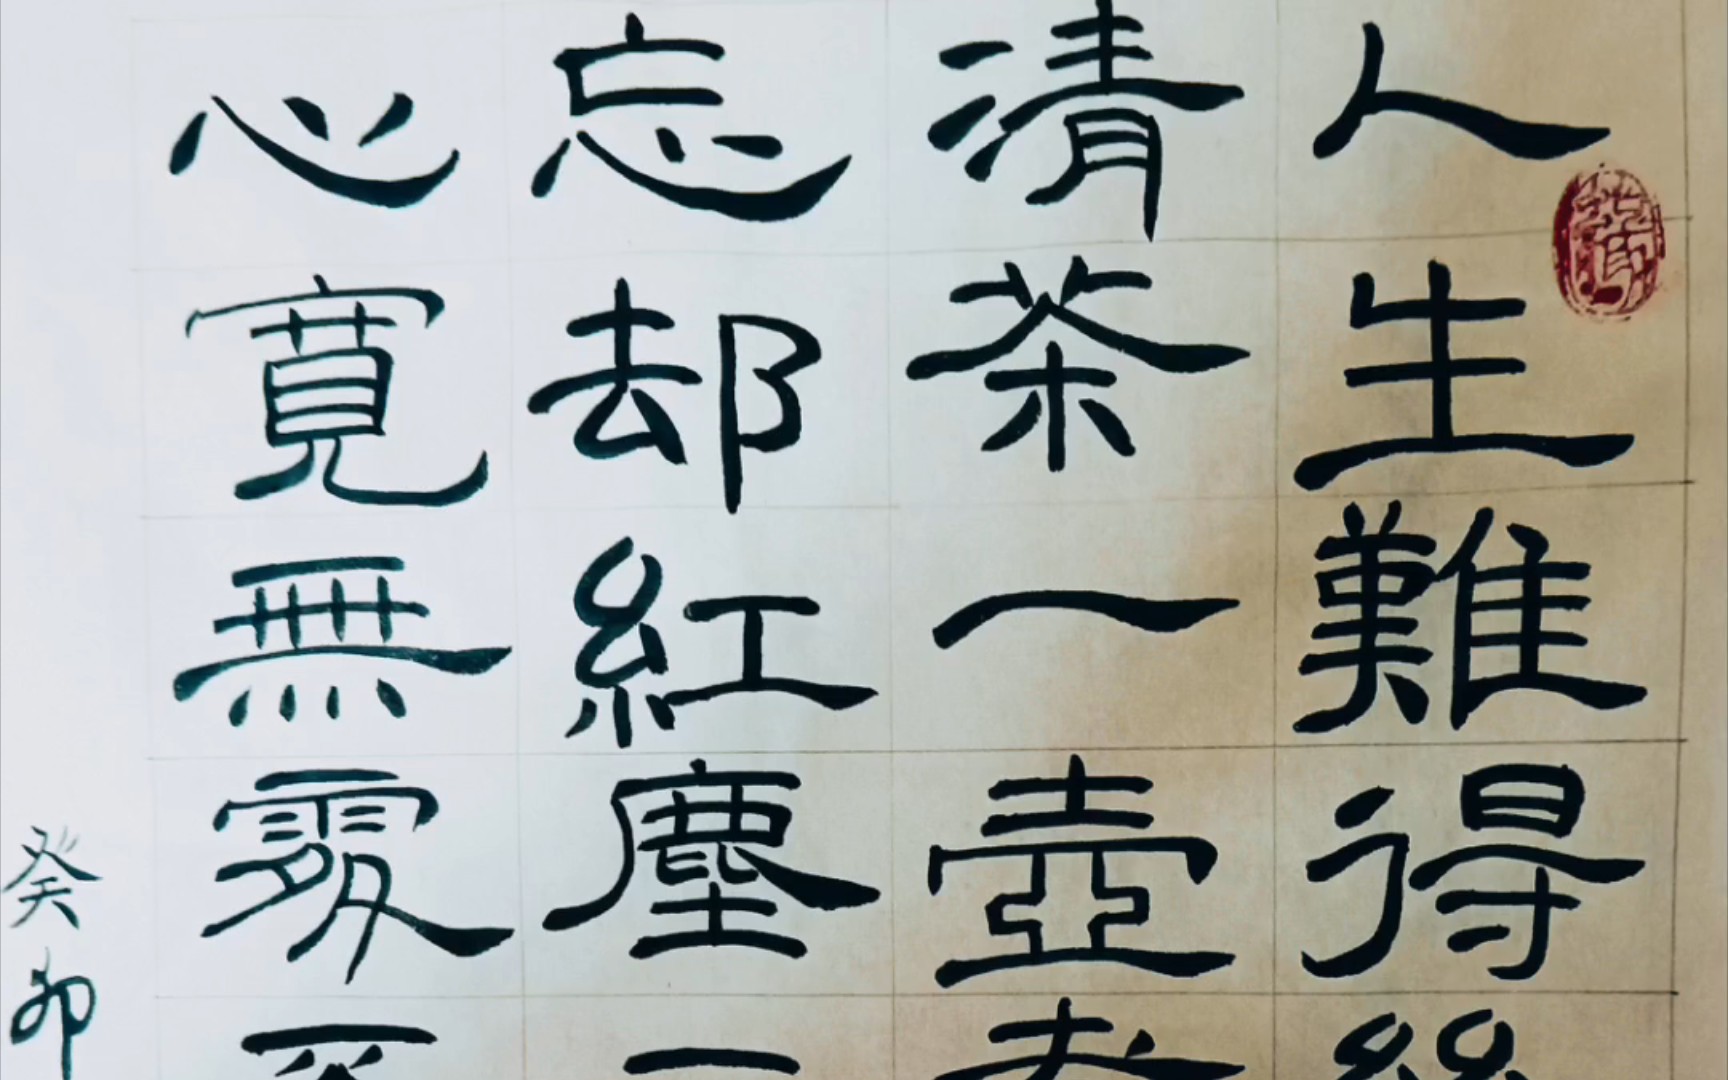 人生難得
清茶一壺
忘却紅塵一
心寬無處不
癸卯